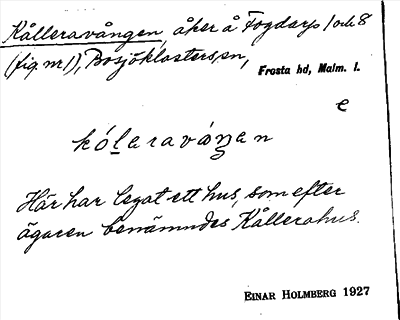 Kålleravången, åker å Fogdarp 1 och 8
(fig. nr 1), Bosjöklosters sn,
Frosta hd, Malm. l.
e
kólaravåŋen
Här har legat ett hus, som efter
ägaren benämndes Kållerahus.
EINAR HOLMBERG 1927